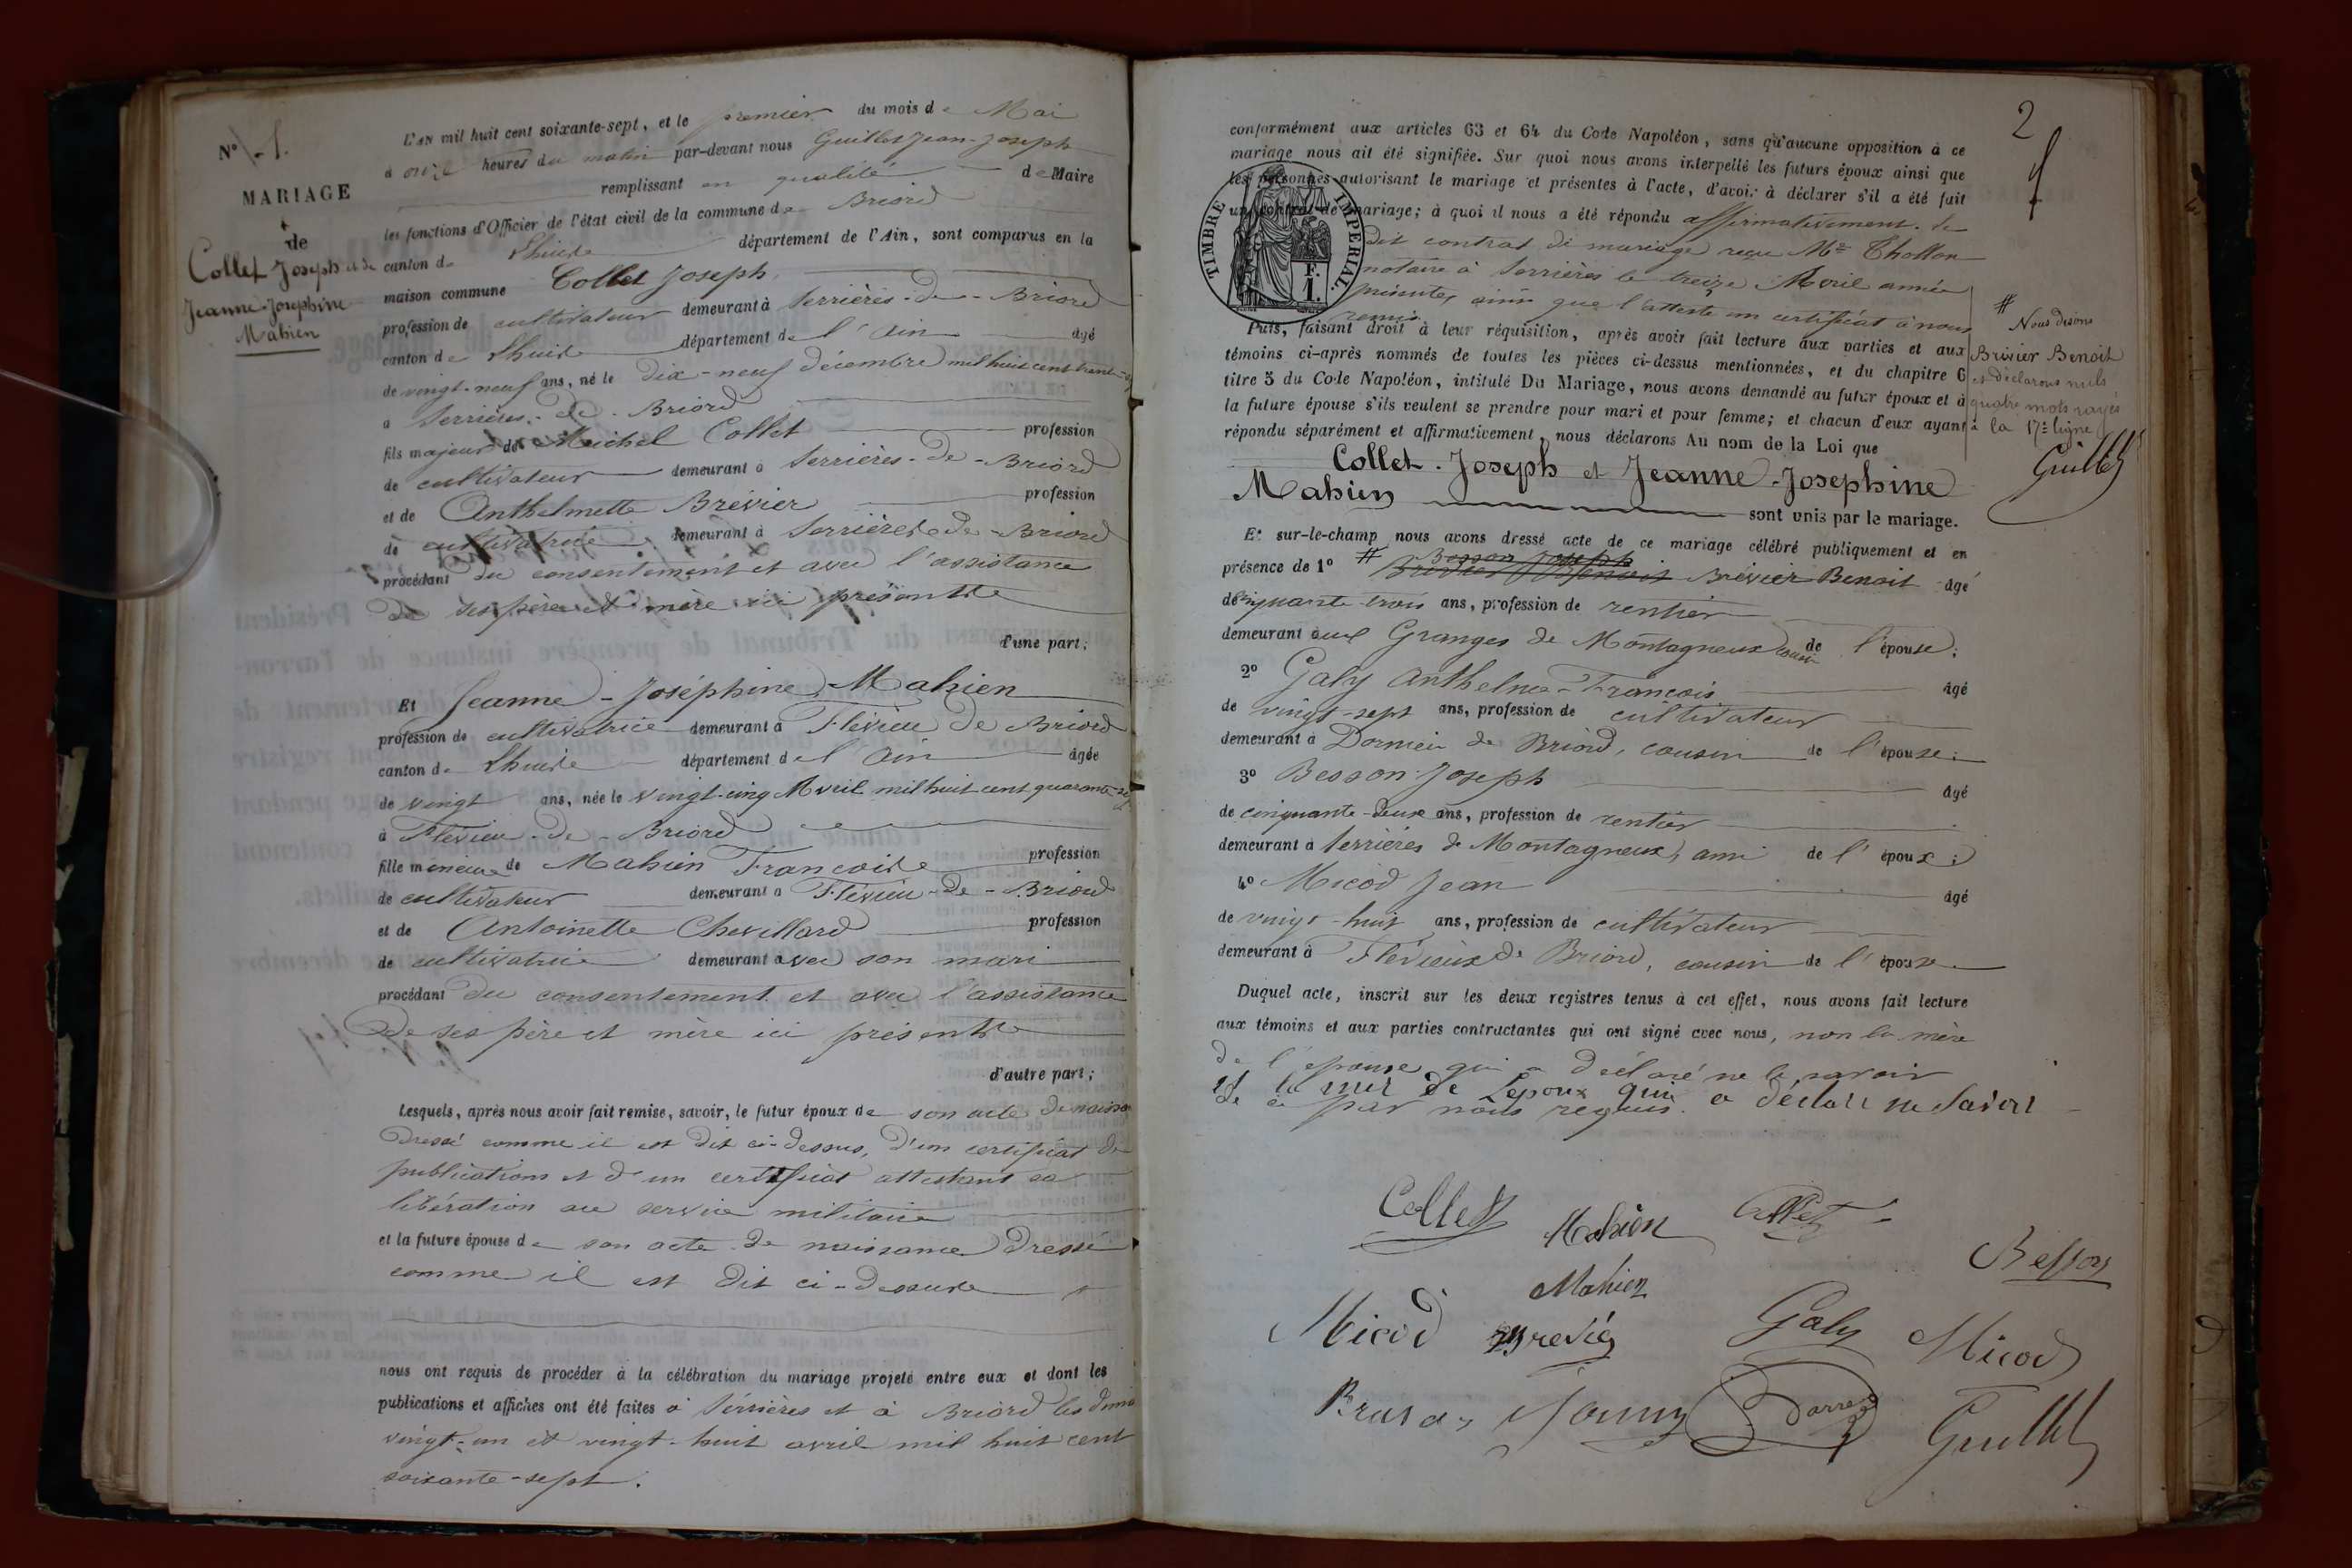 N° 1.
MARIAGE
de
Collet Joseph et de
Jeanne-Josephine
Mahien
L'AN mil huit cent soixante-sept, et le premier du mois de Mai
à onze heures du matin par-devant nous Guillet Jean-Joseph
remplissant en qualité de Maire
les fonctions d'Officier de l'état civil de la commune de Briord
canton de Lhuis département de l'Ain, sont comparus en la
maison commune Collet Joseph
profession de cultivateur demeurant à Serrières-de-Briord
canton de Lhuis département de l'Ain âgé
de vingt-neuf ans, né le dix-neuf décembre mil huit cent trente-
à Serrières-de-Briord
fils majeur de Michel Collet profession
de cultivateur demeurant à Serrières-de-Briord
et de Anthelmette Brévier profession
de cultivatrice demeurant à Serrières-de-Briord
procédant du consentement et avec l'assistance
de ses père et mère ici présents
d'une part;
Et Jeanne-Joséphine Mahien
profession de cultivatrice demeurant à Flévieu de Briord
canton de Lhuis département de l'Ain âgée
de vingt ans, née le vingt-cinq Avril mil huit cent quarante-sept
à Flévieu-de-Briord
fille mineure de Mahien François profession
de cultivateur demeurant à Flévieu-de-Briord
et de Antoinette Chevillard profession
de cultivatrice demeurant avec son mari
procédant du consentement et avec l'assistance
de ses père et mère ici présents
d'autre part;
Lesquels, après nous avoir fait remise, savoir, le futur époux de son acte de naissance
dressé comme il est dit ci-dessus, d'un certificat de
publications et d'un certificat attestant sa
libération au service militaire
et la future épouse de son acte de naissance dressé
comme il est dit ci-dessus
nous ont requis de procéder à la célébration du mariage projeté entre eux et dont les
publications et affiches ont été faites à Serrières et à Briord les dima
vingt-un et vingt-huit avril mil huit cent
soixante-sept.
2
conformément aux articles 63 et 64 du Code Napoléon, sans qu'aucune opposition à ce
mariage nous ait été signifiée. Sur quoi nous avons interpellé les futurs époux ainsi que
les personnes autorisant le mariage et présentes à l'acte, d'avoir à déclarer s'il a été fait
un contrat de mariage; à quoi il nous a été répondu affirmativement. Le
dit contrat de mariage reçu Me Thollon
notaire à Serrières le treize Avril année
présente, ainsi que l'atteste un certificat à nous
remis.
TIMBRE IMPERIAL.
F.
1.
Puis, faisant droit à leur réquisition, après avoir fait lecture aux parties et aux
témoins ci-après nommés de toutes les pièces ci-dessus mentionnées, et du chapitre 6
titre 5 du Code Napoléon, intitulé Du Mariage, nous avons demandé au futur époux et à
la future épouse s'ils veulent se prendre pour mari et pour femme; et chacun d'eux ayant
répondu séparément et affirmativement, nous déclarons Au nom de la Loi que
Collet-Joseph et Jeanne-Josephine
Mahien
sont unis par le mariage.
# Nous disons
Brévier Benoit
et déclarons nuls
quatre mots rayés
à la 17e ligne
Guillet
Et sur-le-champ nous avons dressé acte de ce mariage célébré publiquement et en
Besson Joseph
présence de 1° # Brévier Benoit Brévier Benoit âgé
de cinquante-trois ans, profession de rentier
demeurant aux Granges de Montagneux cousin de l'épouse;
2° Galy Anthelme-François âgé
de vingt-sept ans, profession de cultivateur
demeurant à Dornieu de Briord, cousin de l'épouse;
3° Besson Joseph âgé
de cinquante-deux ans, profession de rentier
demeurant à Serrières de Montagneux, ami de l'époux;
4° Micod Jean âgé
de vingt-huit ans, profession de cultivateur
demeurant à Flévieux de Briord, cousin de l'épouse
Duquel acte, inscrit sur les deux registres tenus à cet effet, nous avons fait lecture
aux témoins et aux parties contractantes qui ont signé avec nous, non la mère
de l'épouse qui a déclaré ne le savoir
et la mer de Lepoux qui a déclaré ne Savoir
de ce par nous requis.
Collet Mahien Collet
Besson
Mahien
Micod Brevié Galy Micod
Guillet